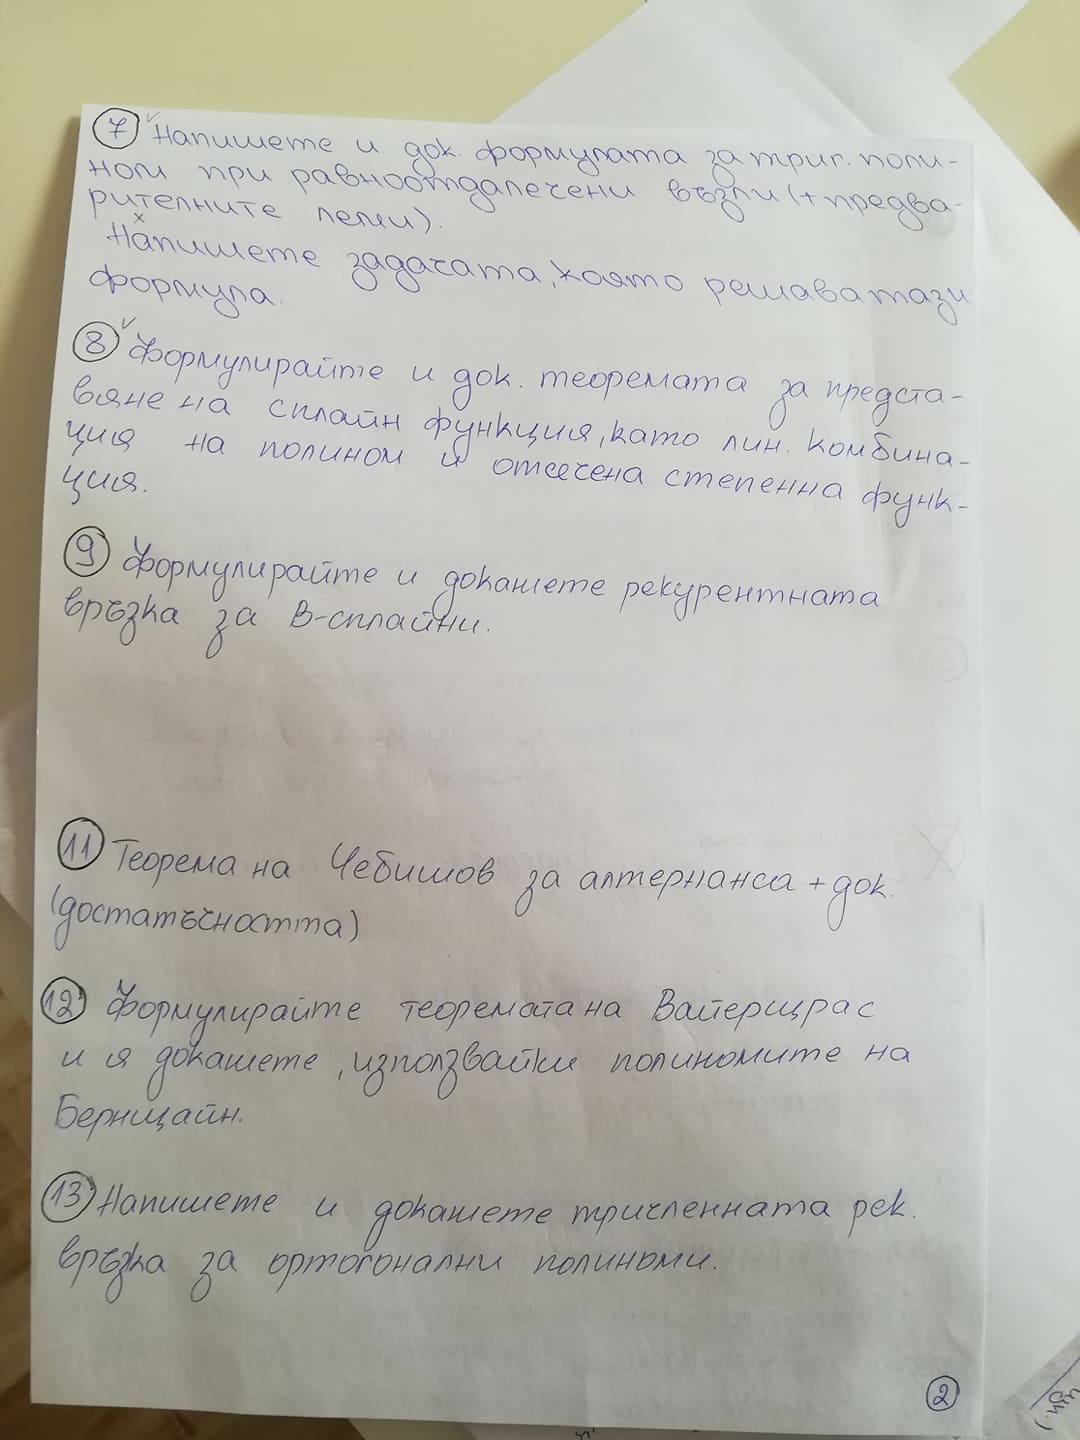 7 Напишете и док. формулата за триг. поли-
ном при равноотдалечени възли (+предва-
рителните леми).
Напишете задачата, която решава тази
формула.
8 Формулирайте и док. теоремата за предста-
вяне на сплайн функция, като лин. комбина-
ция на полином и отсечена степенна функ-
ция.
9 Формулирайте и докажете рекурентната
връзка за B-сплайни.
11 Теорема на Чебишов за алтернанса + док.
(достатъчността)
12 Формулирайте теоремата на Вайерщрас
и я докажете, използвайки полиномите на
Бернщайн.
13 Напишете и докажете тричленната рек.
връзка за ортогонални полиноми.
2